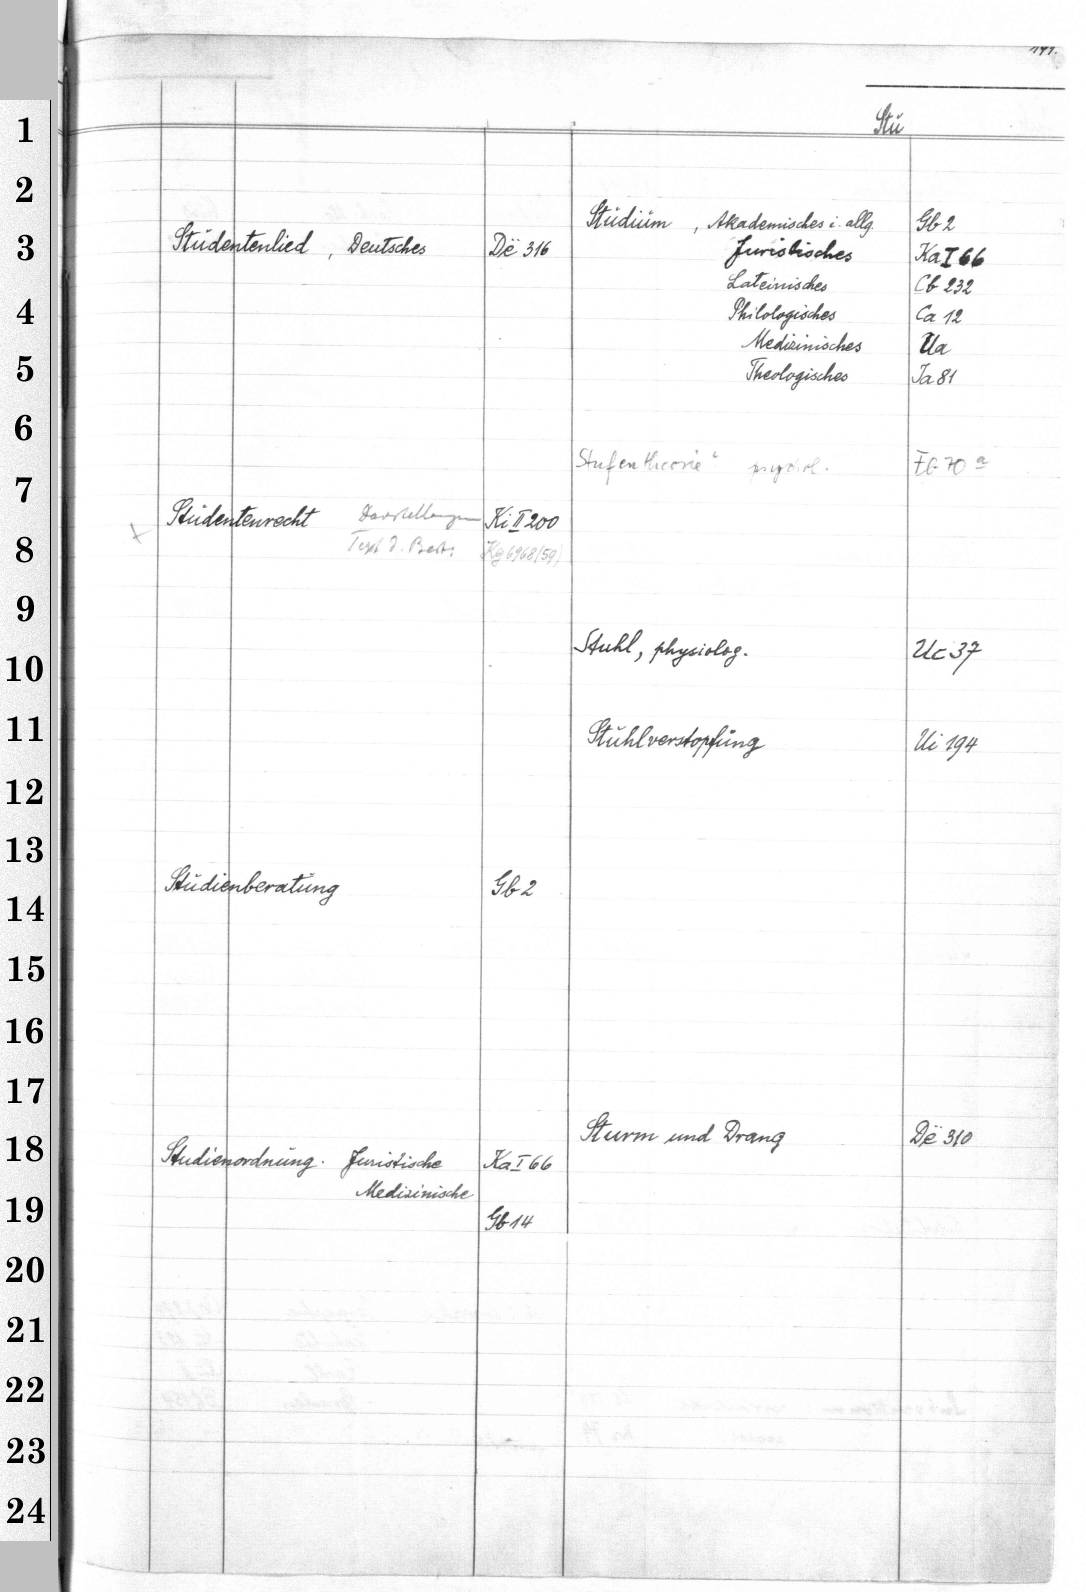 Stu
Studentenlied, Deutsches Dë 316
Studentenrecht Darstellungen Ki II 200
Text d. Best. Kg 6968 (59)
Studienberatung Gb 2
Studienordnung. Juristische Ka I 66
Medizinische
Gb 14
Studium, Akademisches i. allg. Gb 2
Juristisches Ka I 66
Lateinisches Cb 232
Philologisches Ca 12
Medizinisches Ua
Theologisches Ja 81
Stufentheorie psychol. 70 a
Stuhl, physiolog. Uc 37
Stuhlverstopfung Ui 194
Sturm und Drang Dë 310
1
2
3
4
5
6
7
8
9
10
11
12
13
14
15
16
17
18
19
20
21
22
23
24